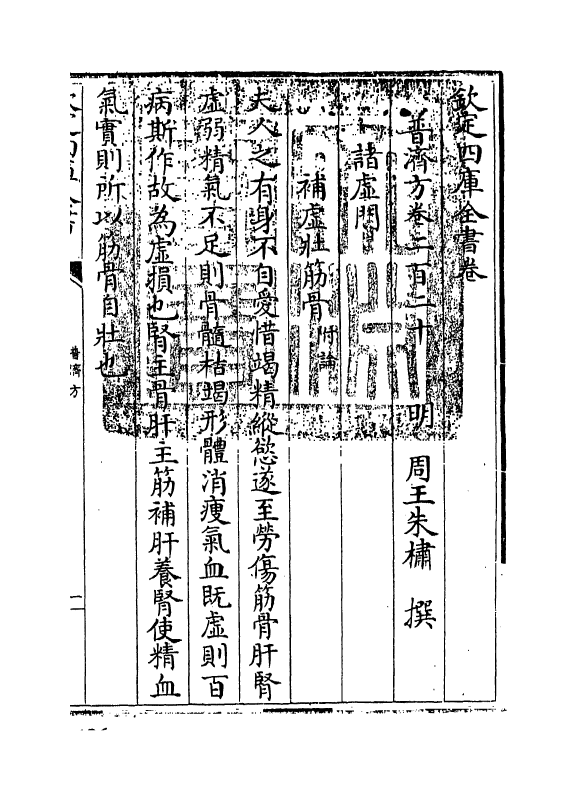 欽定四庫全書卷
普濟方卷二百二十　明　周王朱橚　撰
諸虛門
補虛壯筋骨附論
夫人之有身不自愛惜竭精縱慾遂至勞傷筋骨肝腎
虛弱精氣不足則骨髓枯竭形體消瘦氣血既虛則百
病斯作故為虛損也腎主骨肝主筋補肝養腎使精血
氣實則所以筋骨自壯也
普濟方